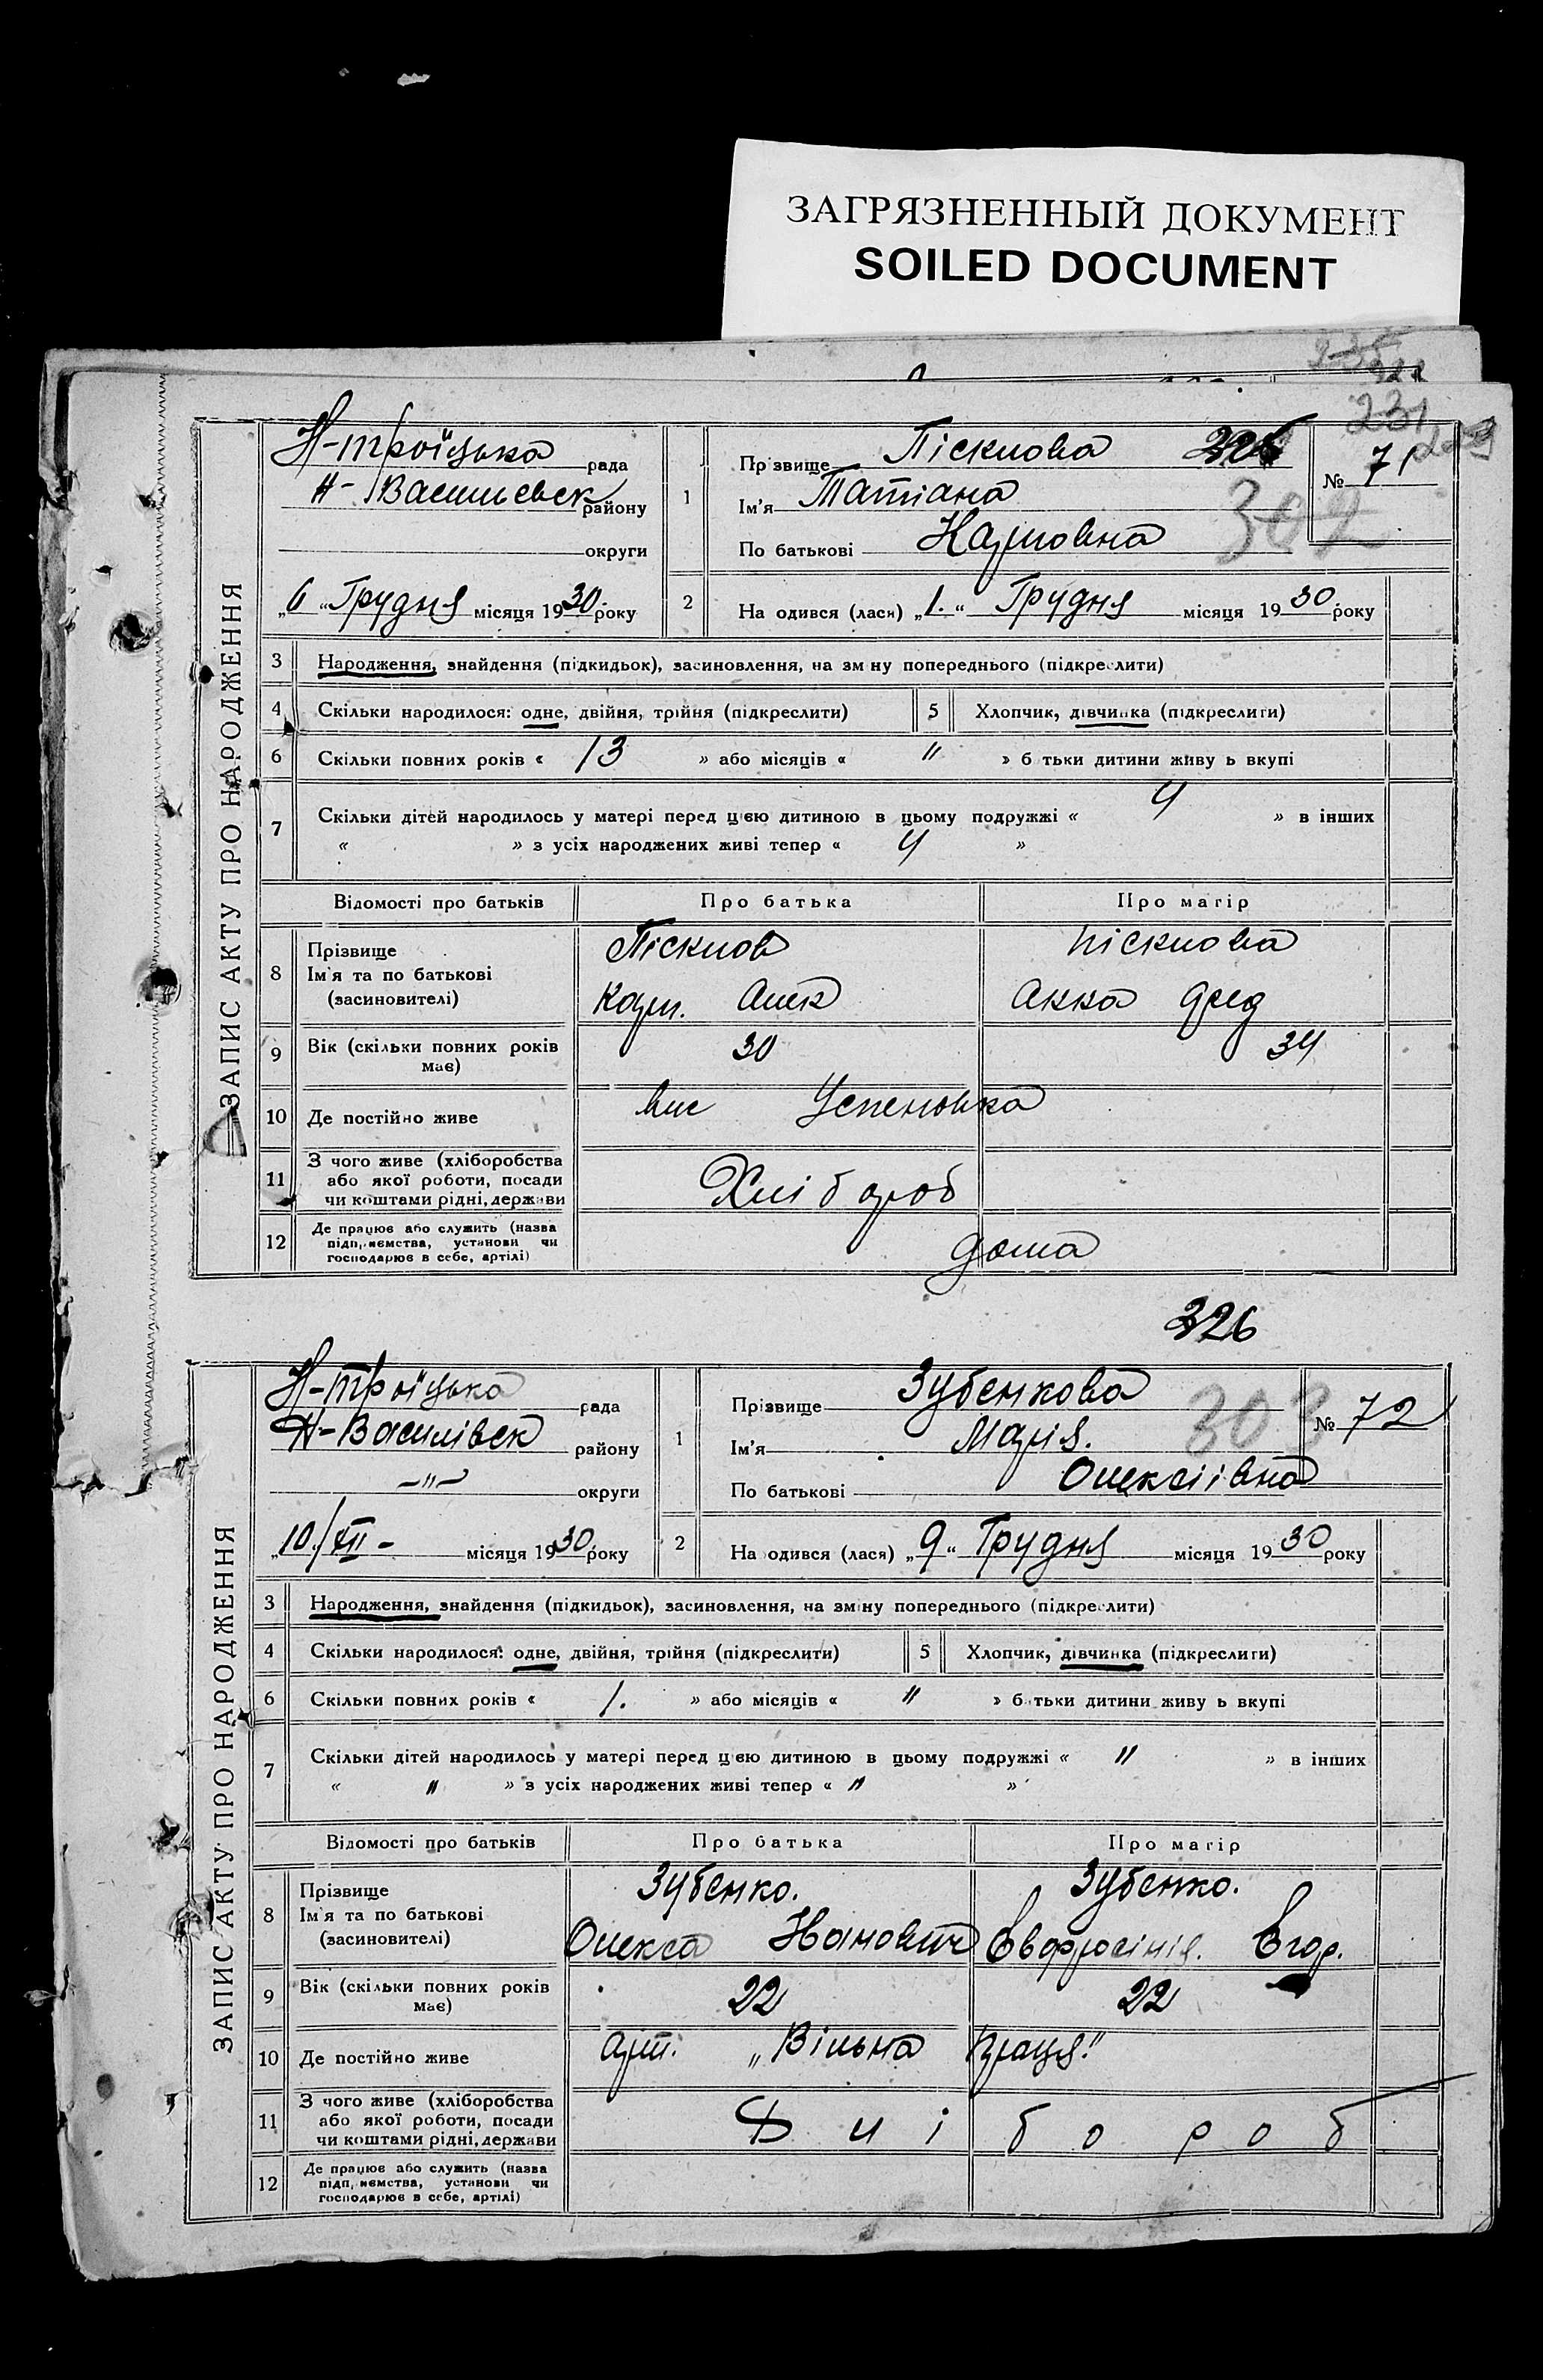 ЗАГРЯЗНЕННЫЙ ДОКУМЕНТ
SOILED DOCUMENT
231
ЗАПИС АКТУ ПРО НАРОДЖЕННЯ
Н-троїцька рада
Н-Васильевск району
округи
„6“ Грудня місяця 1930 року
1
Прізвище Пісклова
Ім'я Татіана
По батькові Карповна
№ 71
302
2
На одився (лася) „1.“ Грудня місяця 1930 року
3 Народження, знайдення (підкидьок), засиновлення, на зміну попереднього (підкреслити)
4 Скільки народилося: одне, двійня, трійня (підкреслити) 5 Хлопчик, дівчинка (підкреслити)
6 Скільки повних років « 13 » або місяців « " » б тьки дитини живу ь вкупі
7 Скільки дітей народилось у матері перед цією дитиною в цьому подружжі « 4 » в інших
« » з усіх народжених живі тепер « 4 »
Відомості про батьків Про батька Про матір
8 Прізвище Ім'я та по батькові (засиновителі)
Пісклов Пісклова
Карп. Алек Анна Фед
9 Вік (скільки повних років має) 30 34
10 Де постійно живе Успеновка
11 З чого живе (хліборобства або якої роботи, посади чи коштами рідні, держави Хлібороб
12 Де працює або служить (назва підприємства, установи чи господарює в себе, артілі) дома
326
ЗАПИС АКТУ ПРО НАРОДЖЕННЯ
Н-троїцька рада
Н-Василівск району
—"— округи
„10/XII - місяця 1930 року
1
Прізвище Зубенкова
Ім'я Марія.
По батькові Олексіівна
№ 72
303
2
На одився (лася) „9“ Грудня місяця 1930 року
3 Народження, знайдення (підкидьок), засиновлення, на зміну попереднього (підкреслити)
4 Скільки народилося: одне, двійня, трійня (підкреслити) 5 Хлопчик, дівчинка (підкреслити)
6 Скільки повних років « 1. » або місяців « " » б тьки дитини живу ь вкупі
7 Скільки дітей народилось у матері перед цією дитиною в цьому подружжі « " » в інших
« " » з усіх народжених живі тепер « " »
Відомості про батьків Про батька Про матір
8 Прізвище Ім'я та по батькові (засиновителі)
Зубенко. Зубенко.
Олекса Іванович Евфросінія. Егор.
9 Вік (скільки повних років має) 22 22
10 Де постійно живе арт. „Вільна праця."
11 З чого живе (хліборобства або якої роботи, посади чи коштами рідні, держави Хлібороб
12 Де працює або служить (назва підприємства, установи чи господарює в себе, артілі)